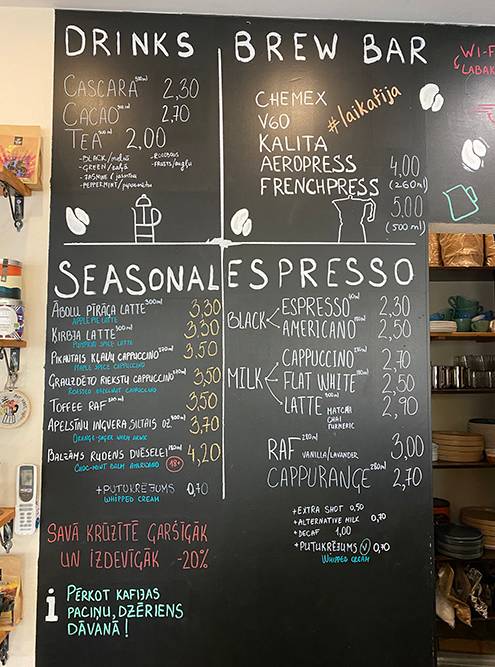 DRINKS
CASCARA 300ml 2,30
CACAO 300ml 2,70
TEA 300ml 2,00
- BLACK/melnā
- GREEN/zaļā
- JASMINE/jasmīnu
- PEPPERMINT/piparmētru
- ROOIBOSS
- FRUITS/augļu
BREW BAR
CHEMEX
V60
KALITA
AEROPRESS
FRENCHPRESS
#laikafija
4,00
(260ml)
5.00
(500 ml)
WI-F
LABAK
SEASONAL
ĀBOLU PĪRĀGA LATTE 300ml 3,30
APPLE PIE LATTE
ĶIRBJA LATTE 300ml 3,30
PUMPKIN SPICE LATTE
PIKANTAIS KĻAVU CAPPUCCINO 3,50
MAPLE SPICE CAPPUCCINO
GRAUZDĒTO RIEKSTU CAPPUCCINO 3,50
ROASTED HAZELNUT CAPPUCCINO
TOFFEE RAF 3,50
APELSĪNU INGVERA SILTAIS DZ. 300ml 3,70
ORANGE-GINGER WARM DRINK
BALZĀMS RUDENS DVĒSELEI 4,20
CHOC-MINT BALM AMERICANO 18+
+ PUTUKRĒJUMS 0,70
WHIPPED CREAM
ESPRESSO
BLACK
ESPRESSO 2,30
AMERICANO 2,50
MILK
CAPPUCCINO 2,70
FLAT WHITE 2,50
LATTE 300ml 2,90
MATCHA
CHAI
TURMERIC
RAF 280ml VANILLA/LAVANDER 3,00
CAPPURANGE 280ml 2,70
+ EXTRA SHOT 0,50
+ ALTERNATIVE MILK 0,70
+ DECAF 1,00
+ PUTUKRĒJUMS V 0,70
WHIPPED CREAM
SAVĀ KRŪZĪTĒ GARŠĪGĀK
UN IZDEVĪGĀK -20%
i PĒRKOT KAFIJAS
PACIŅU, DZĒRIENS
DĀVANĀ!